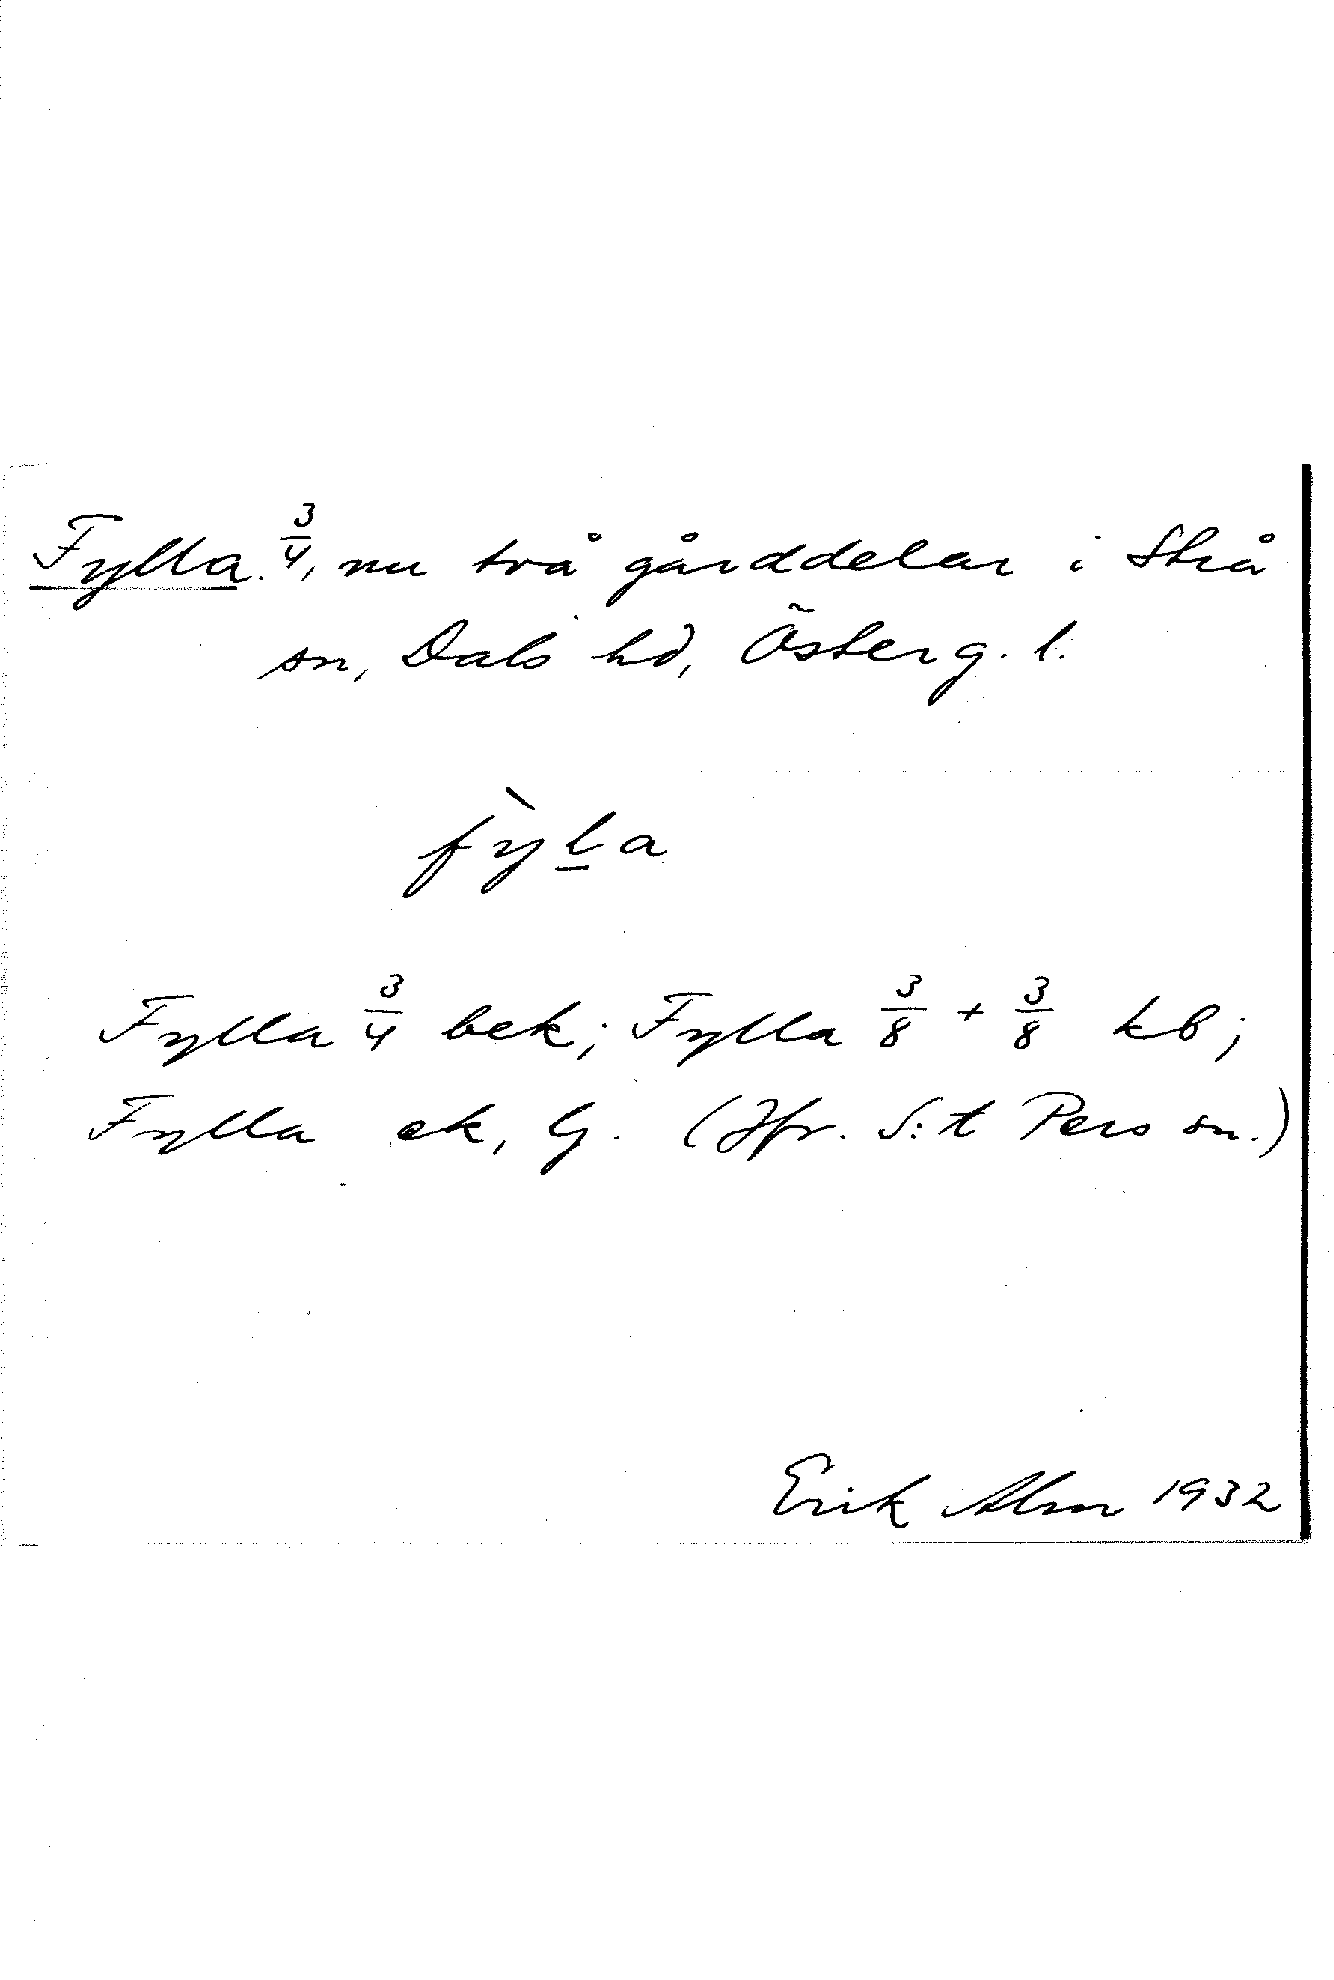 Fylla. 3/4, nu två gårddelar i Strå
sn, Dals hd, Österg. l.
fỳl̲a
Fylla 3/4 bek; Fylla 3/8 + 3/8 kb;
Fylla ek, G. (Jfr. S:t Pers sn.)
Erik Alm 1932